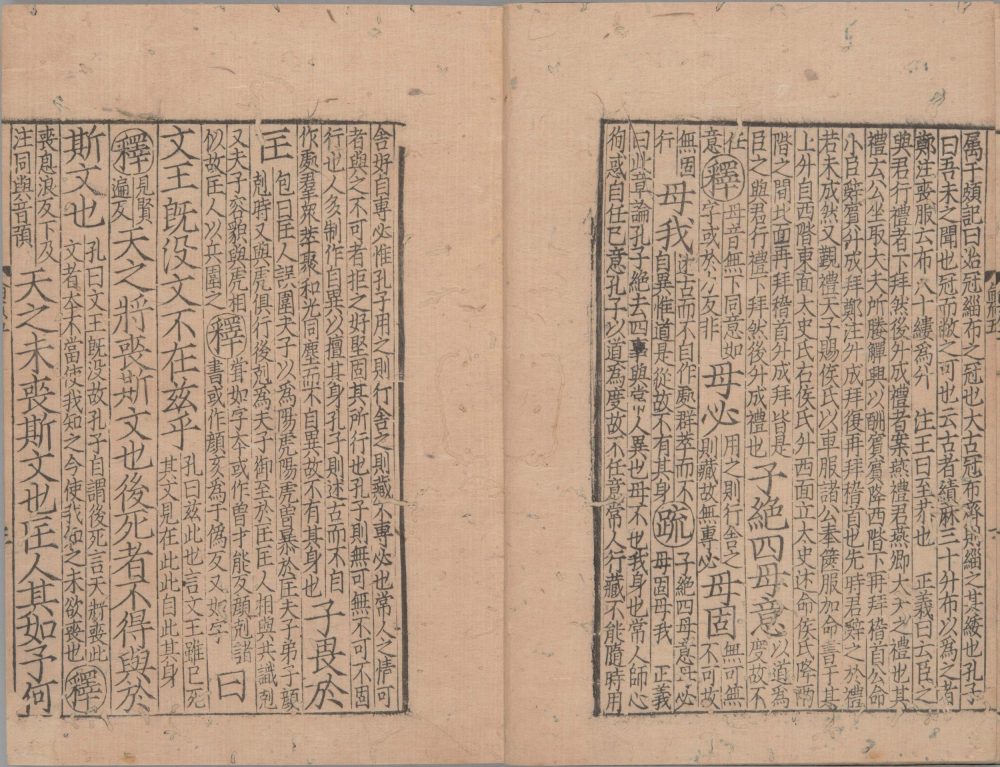 屬于頍記曰始冠緇布之冠也大古冠布齊則緇之其緌也孔子
曰吾未之聞也冠而敝之可也云古者績麻三十升布以爲之者
鄭注喪服云布八十縷爲升 注王曰至恭也 正義曰云臣之
與君行禮者下拜然後升成禮者案燕禮君燕卿大夫之禮也其
禮云公坐取大夫所媵觶興以酬賓賓降西階下再拜稽首公命
小臣辭賓升成拜鄭注升成拜復再拜稽首也先時君辭之於禮
若未成然又覲禮天子賜侯氏以車服諸公奉篋服加命書于其
上升自西階東面大史氏右侯氏升西面立大史述命侯氏降兩
階之間北面再拜稽首升成拜皆是
臣之與君行禮下拜然後升成禮也 子絕四毋意 以道爲度故不
任意 釋 毋音無下同意如字或於力反非 毋必 用之則行舍之則藏故無專必 毋固 無可無不可故
無固行 毋我 述古而不自作處群萃而不自異惟道是從故不有其身 疏 子絕四毋意毋必毋固毋我 正義
曰此章論孔子絕去四事與常人異也毋不也我身也常人師心
徇惑自任己意孔子以道爲度故不任意常人行藏不能隨時用
舍好自專必惟孔子用之則行舍之則藏不專必也常人之情可
者與之不可者拒之好堅固其所行也孔子則無可無不可不固
行也人多制作自異以擅其身孔子則述古而不自
作處羣衆萃聚和光同塵而不自異故不有其身也 子畏於
匡 包曰匡人誤圍夫子以爲陽虎陽虎曾暴於匡夫子弟子顏剋時又與虎俱行後剋爲夫子御至於匡匡人相與共識剋
又夫子容貌與虎相似故匡人以兵圍之 釋 曾如字本或作曽才能反顏剋諸書或作顏亥爲于僞反又如字 曰
文王旣沒文不在兹乎 孔曰兹此也言文王雖已死其文見在此此自此其身
釋 見賢遍反 天之將喪斯文也後死者不得與於
斯文也 孔曰文王旣沒故孔子自謂後死言天將喪此文者本不當使我知之今使我知之未欲喪也 釋
喪息浪反下及注同與音預 天之未喪斯文也匡人其如予何